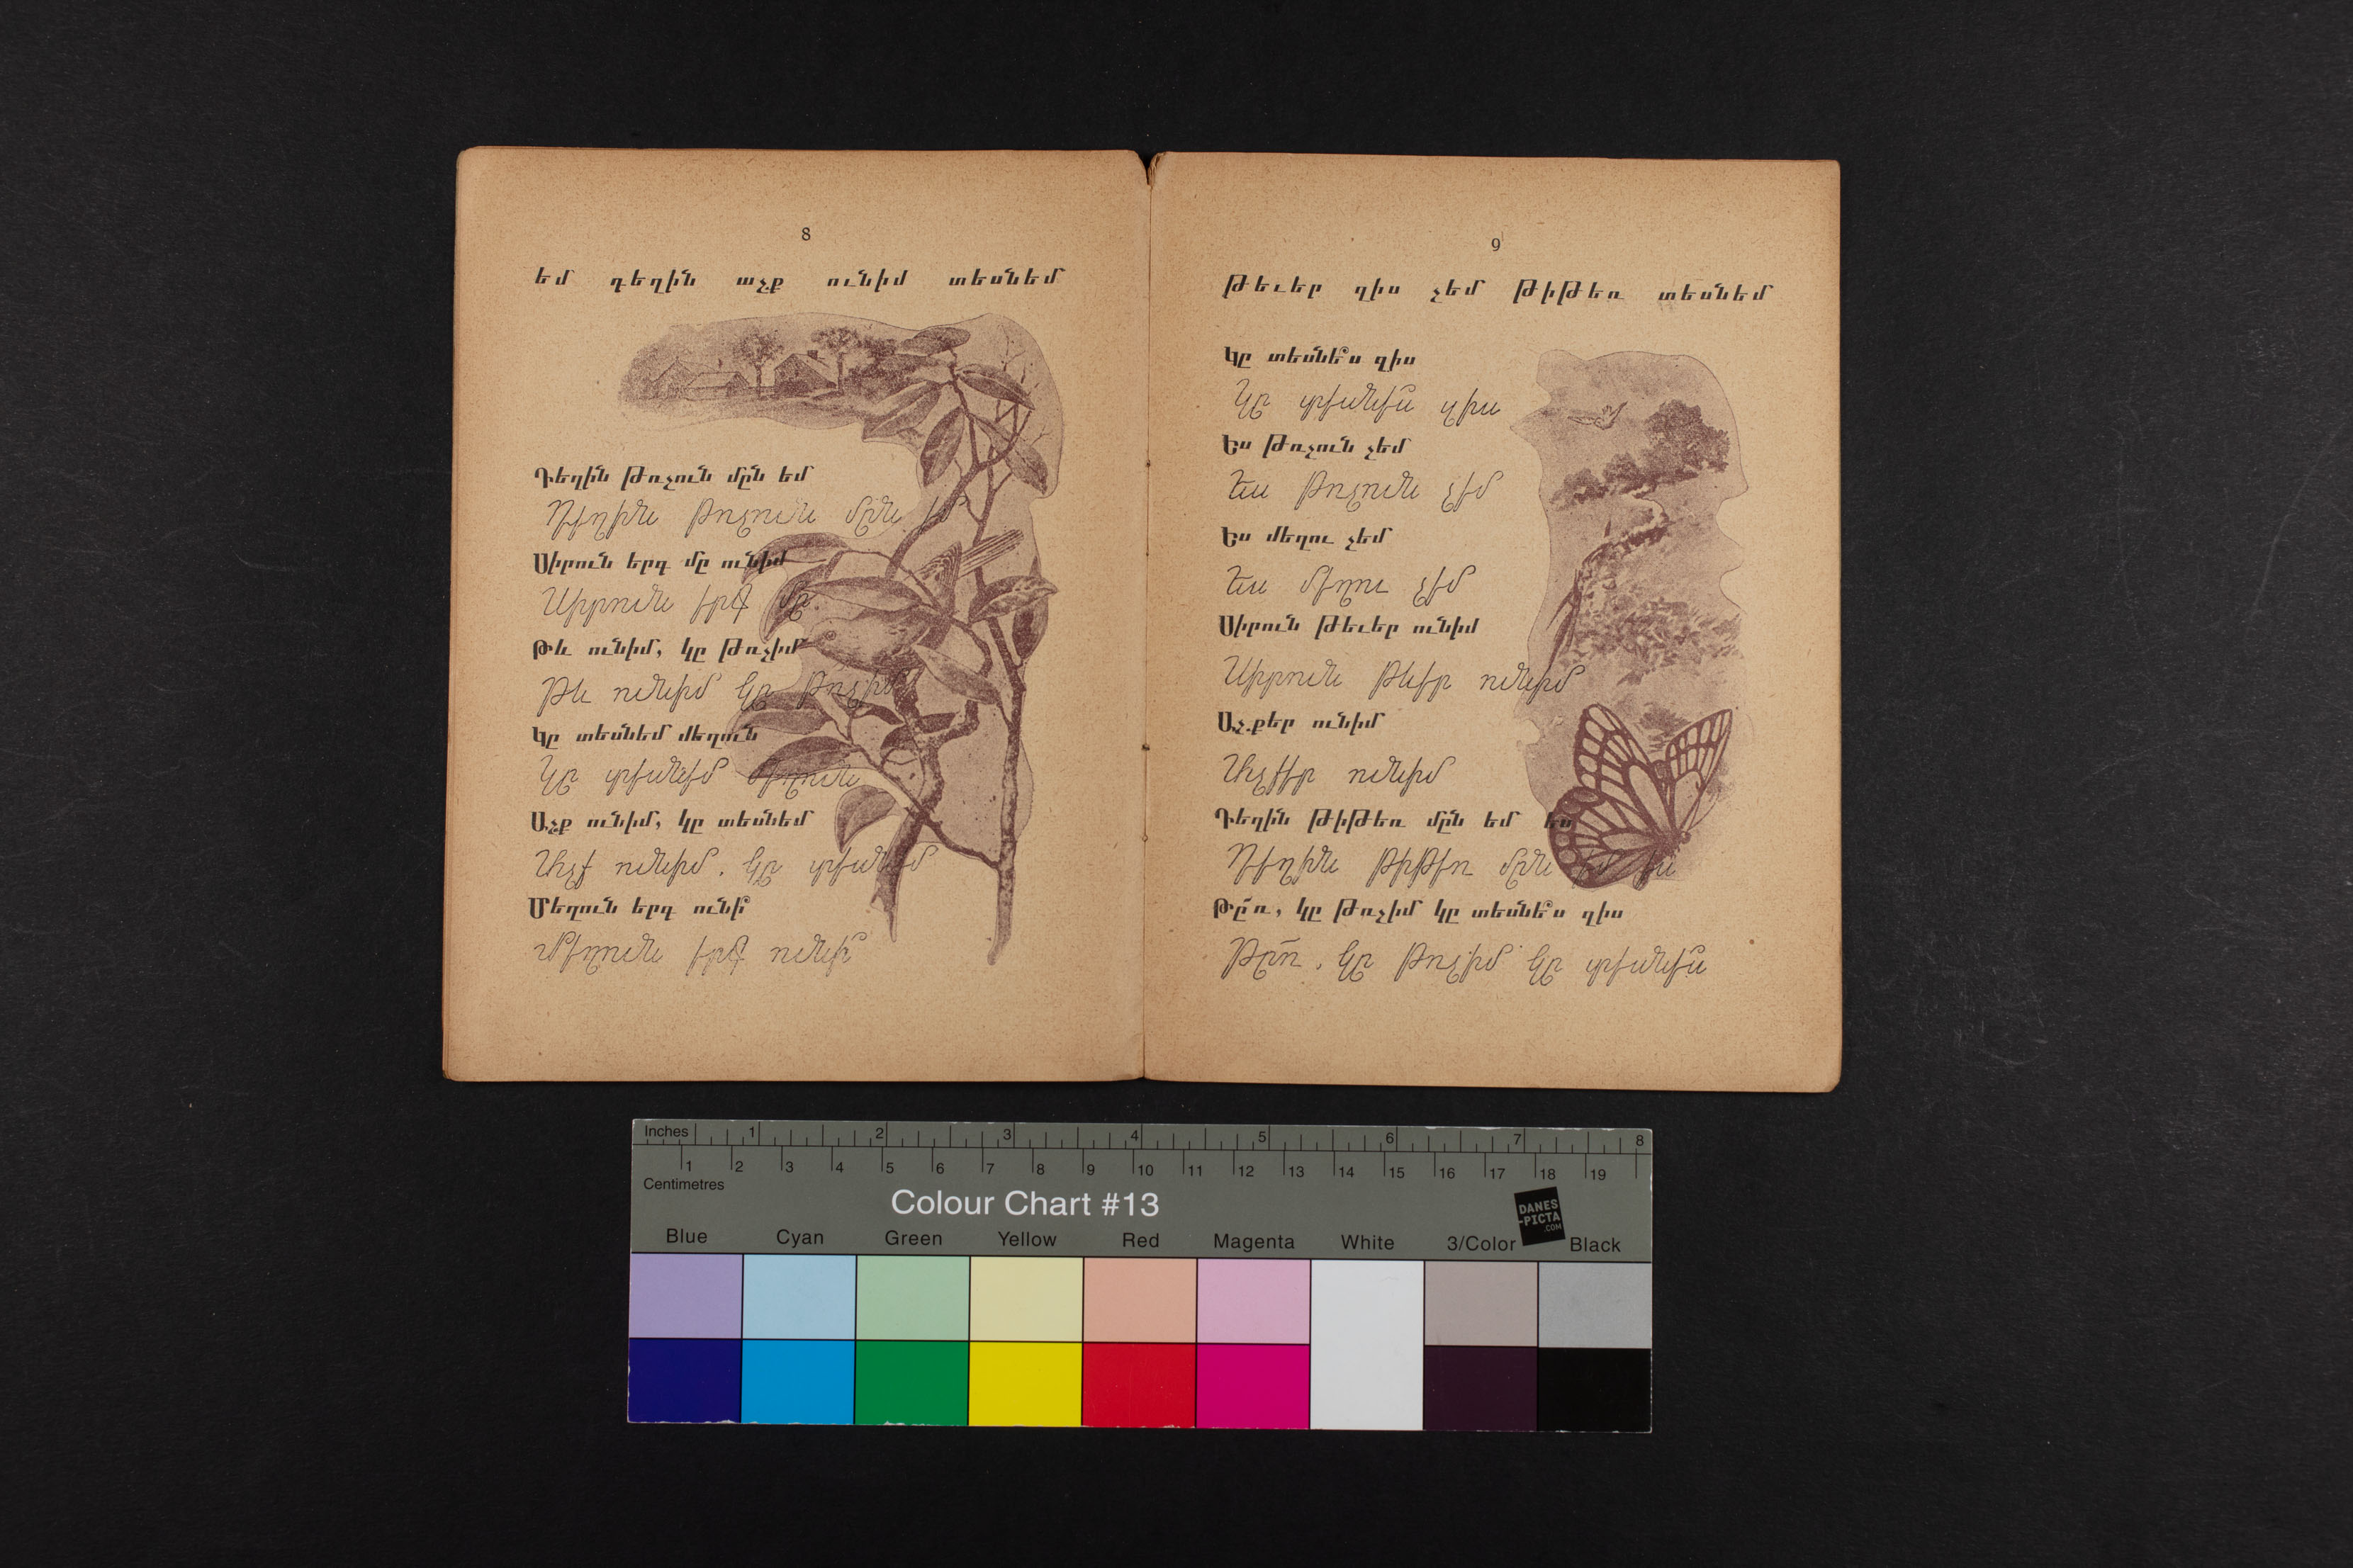 8
եմ դեղին աչք ունիմ տեսնեմ
Դեղին թռչուն մըն եմ
Դեղին թռչուն մըն եմ
Սիրուն երգ մը ունիմ
Սիրուն երգ մը
Թև ունիմ, կը թռչիմ
Թև ունիմ կը թռչիմ
Կը տեսնեմ մեղուն
Կը տեսնեմ մեղուն
Աչք ունիմ, կը տեսնեմ
Աչք ունիմ, կը տեսնեմ
Մեղուն երգ ունի՞
Մեղուն երգ ունի՞
9
թեւեր զիս չեմ թիթեռ տեսնեմ
Կը տեսնե՞ս զիս
Կը տեսնե՞ս զիս
Ես թռչուն չեմ
Ես թռչուն չեմ
Ես մեղու չեմ
Ես մեղու չեմ
Սիրուն թեւեր ունիմ
Սիրուն թևեր ունիմ
Աչքեր ունիմ
Աչքեր ունիմ
Դեղին թիթեռ մըն եմ ես
Դեղին թիթեռ մըն եմ ես
Թը՜ռ, կը թռչիմ կը տեսնե՞ս զիս
Թը՜ռ, կը թռչիմ կը տեսնե՞ս
Inches 1 2 3 4 5 6 7 8
1 2 3 4 5 6 7 8 9 10 11 12 13 14 15 16 17 18 19
Centimetres
Colour Chart #13
DANES
-PICTA
.COM
Blue Cyan Green Yellow Red Magenta White 3/Color Black